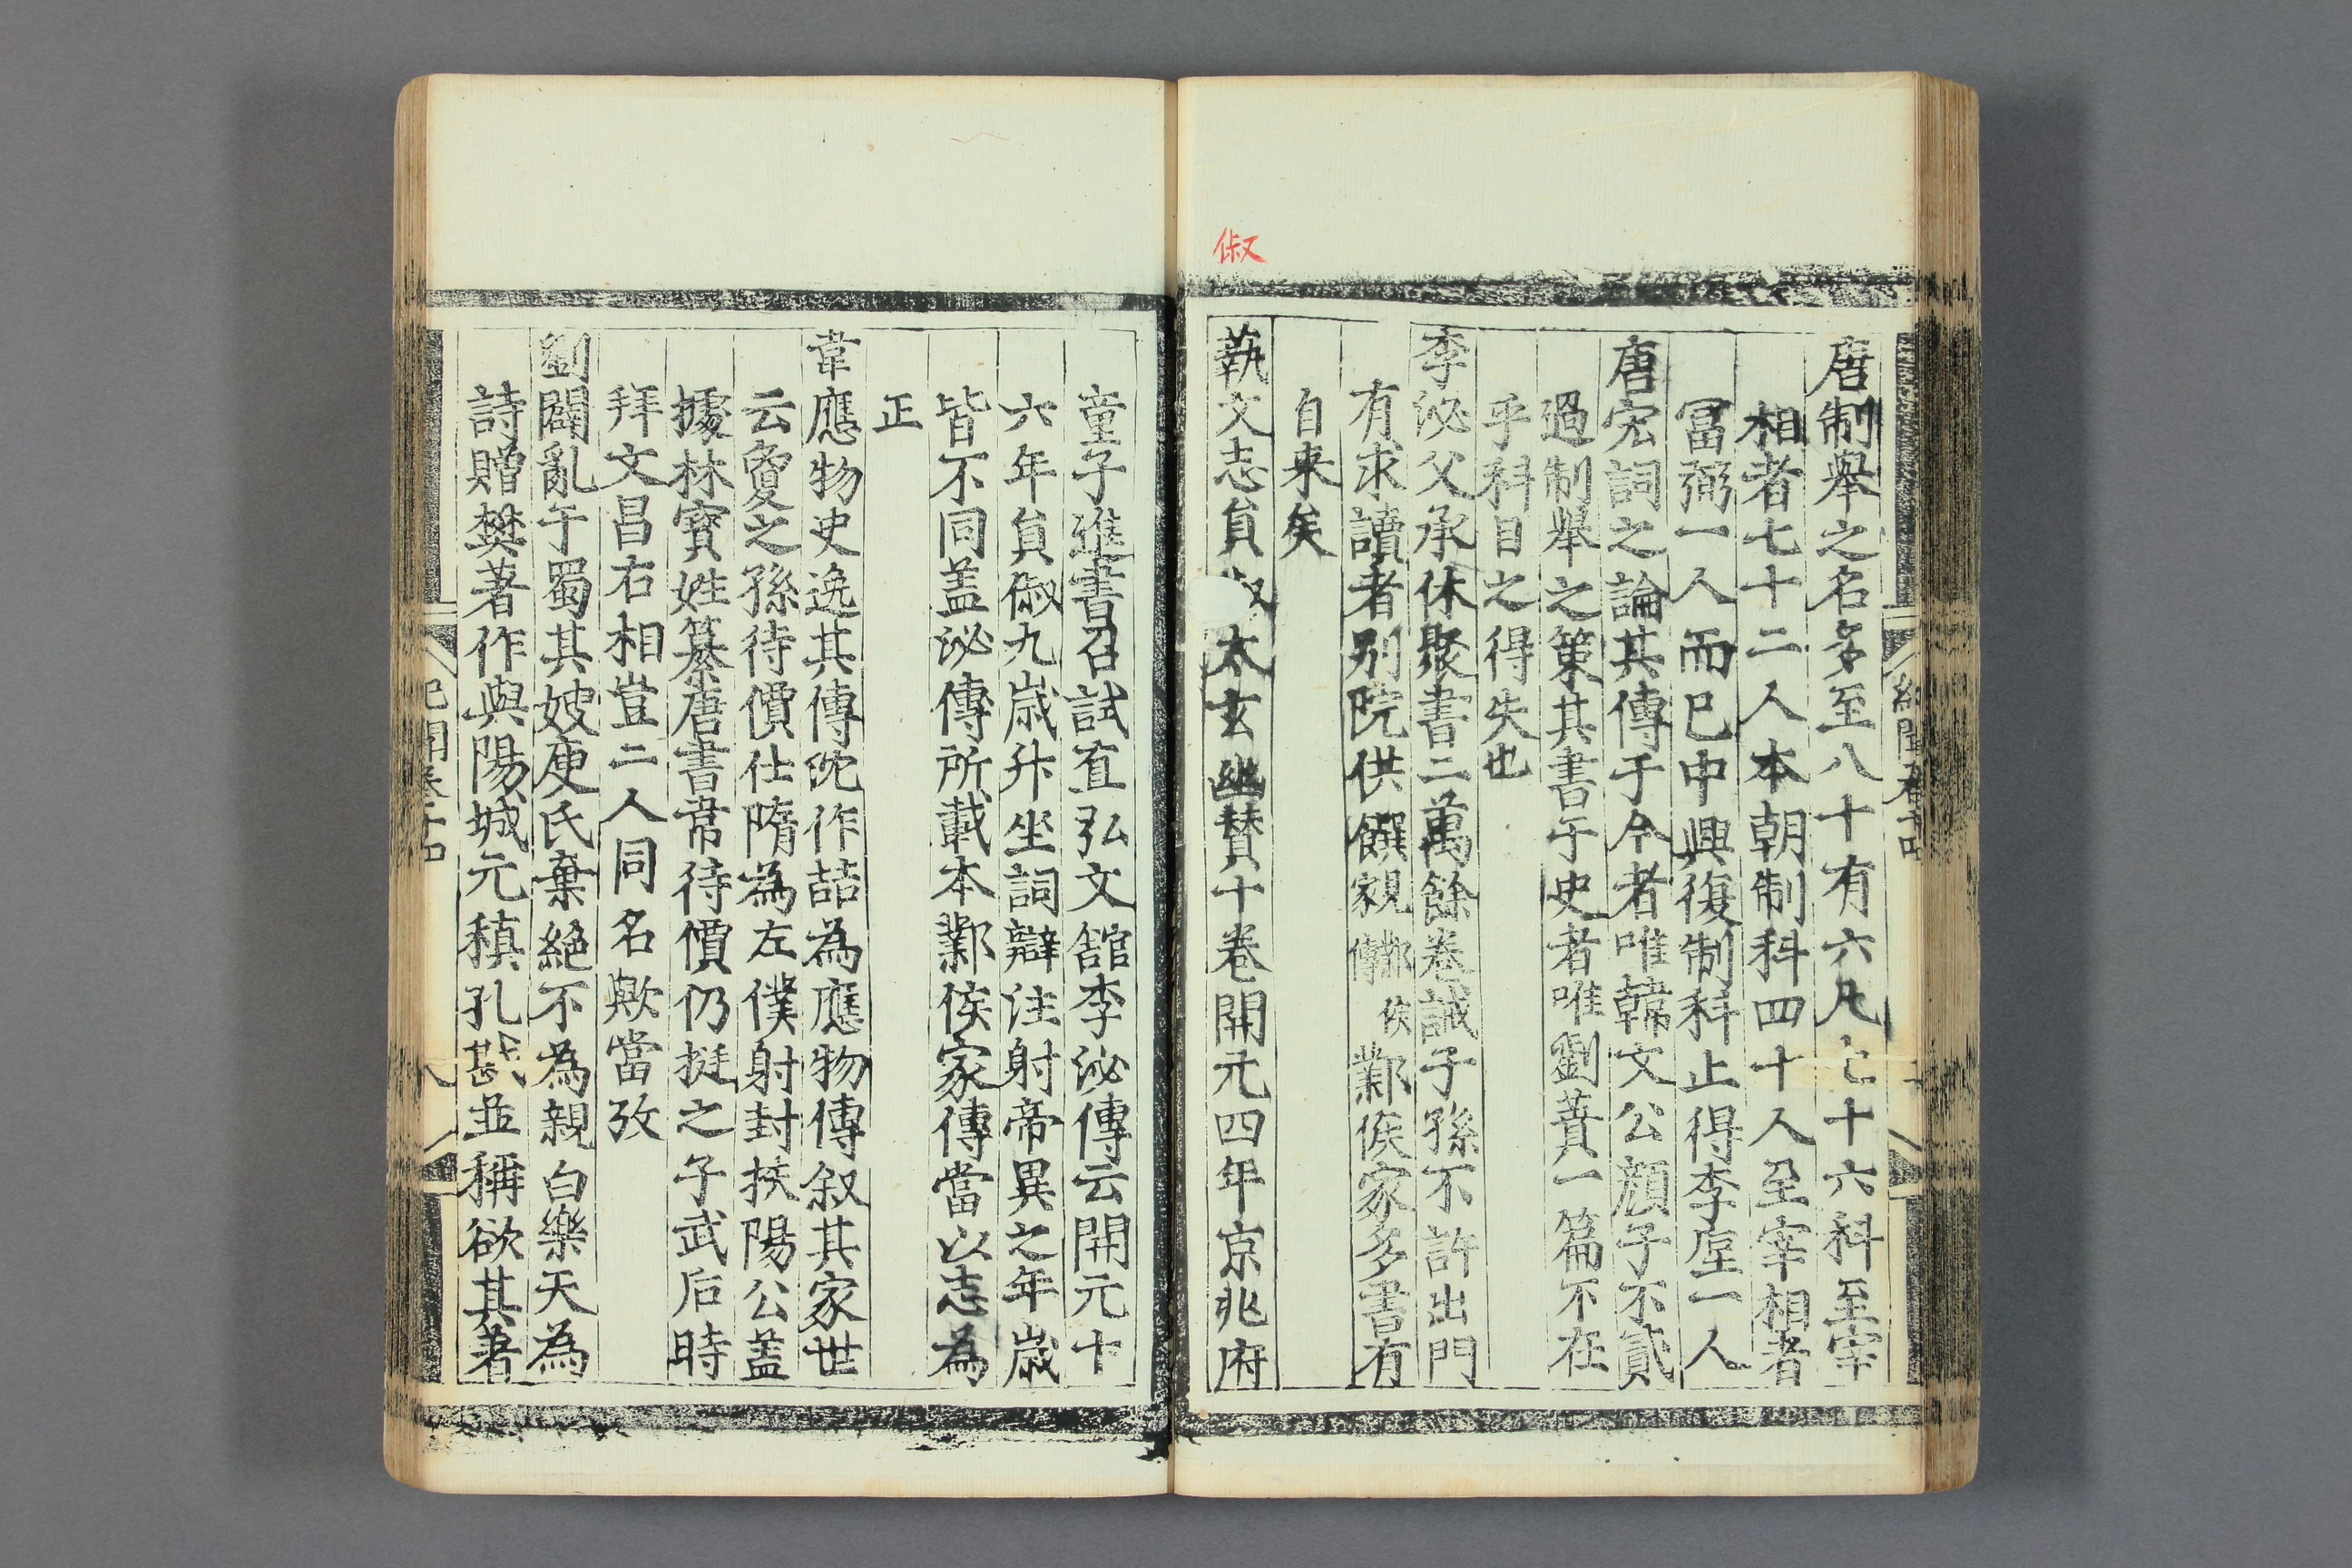 俶
唐制舉之名多至八十有六凡七十六科至宰
相者七十二人本朝制科四十人至宰相者
冨弼一人而巳中興復制科止得李垕一人
唐宏詞之論其傳于今者唯韓文公顔子不貳
過制舉之策其書于史者唯劉蕡一篇不在
乎科目之得失也
李泌父承休聚書二萬餘卷誡子孫不許出門
有求讀者别院供饌鄴侯家傳鄴侯家多書有
自来矣
蓺文志負俶太玄幽賛十卷開元四年京兆府
童子進書召試直弘文舘李泌傳云開元十
六年負俶九歲升坐詞辯注射帝異之年歲
皆不同盖泌傳所載本鄴侯家傳當以志為
正
韋應物史逸其傳沈作喆為應物傳叙其家世
云夐之孫待價仕隋為左僕射封扶陽公盖
據林寳姓纂唐書韋待價仍挺之子武后時
拜文昌右相豈二人同名歟當攷
劉闢亂于蜀其嫂庾氏棄絶不為親白樂天為
詩贈樊著作與陽城元稹孔戡並稱欲其著